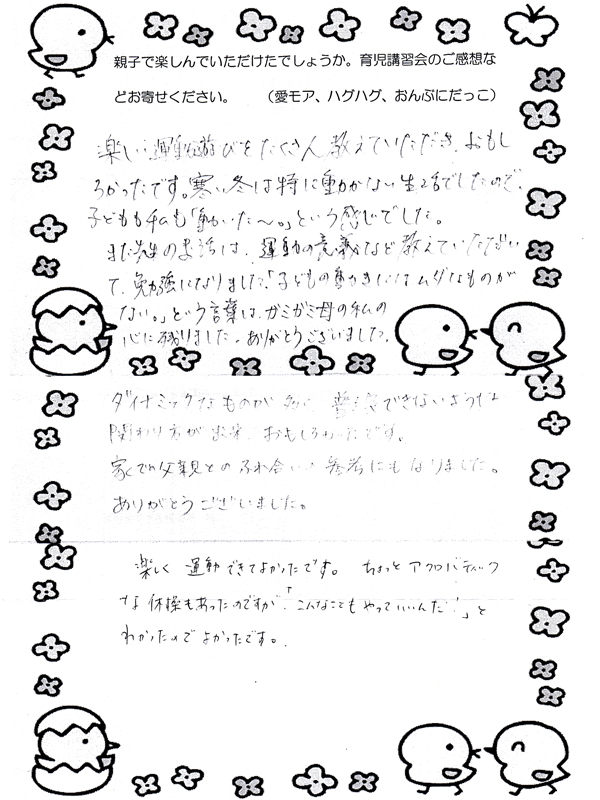 親子で楽しんでいただけたでしょうか。育児講習会のご感想な
どお寄せください。　　（愛モア、ハグハグ、おんぶにだっこ）
楽しい運動遊びをたくさん教えていただき、おもし
ろかったです。寒い冬は特に動かない生活でしたので、
子どもも私も「動いた〜。」という感じでした。
また先生のお話は、運動の意義など教えていただい
て、勉強になりました。「子どもの動きにはムダなものが
ない。」という言葉は、ガミガミ母の私の
心に残りました。ありがとうございました。
ダイナミックなものが多く、普段できないような
関わり方が出来、おもしろかったです。
家での父親とのふれ合いの参考にもなりました。
ありがとうございました。
楽しく運動できてよかったです。ちょっとアクロバティック
な体操もあったのですが「こんなこともやっていいんだ！」と
わかったのでよかったです。